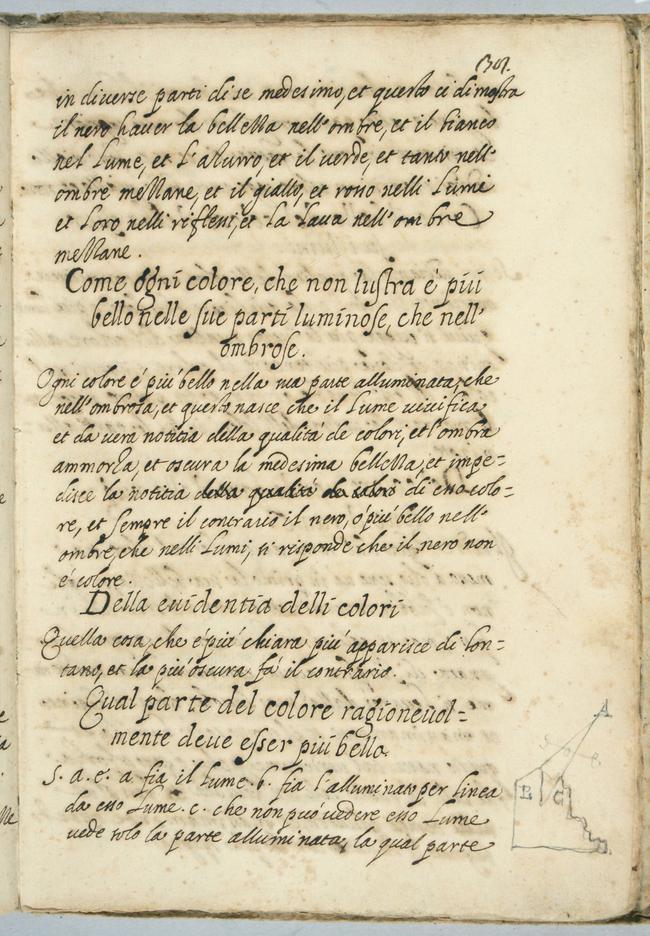 301.
in diuerse parti di se medesimo, et questo ci dimostra
il nero hauer la bellezza nell'ombre, et il bianco
nel Lume, et l'azurro, et il uerde, et tanè nell'
ombre mezzane, et il giallo, et rosso nelli Lumi
et Loro nelli riflessi, et La Lacca nell'ombre
mezzane.
Come ogni colore, che non lustra é piú
bello nelle sue parti luminose, che nell'
ombrose.
Ogni colore é piú bello nella sua parte alluminata, che
nell'ombrosa, et questo nasce che il Lume uiuifica,
et da uera notitia della qualitá de colori, et l'ombra
ammorza, et oscura la medesima bellezza, et impe=
disce la notitia della qualitá de colori di esso colo=
re, et sempre il contrario il nero, o' piú bello nell'
ombre, che nelli Lumi, si risponde che il nero non
é colore.
Della euidentia delli colori
Quella cosa, che é piú chiara piú apparisce di lon=
tano, et la piú oscura fá il contrario.
Qual parte del colore ragioneuol=
mente deue esser piú bello.
S. a. e. a fia il lume. b. fia l'alluminato per linea
da esso Lume. c. che non puó uedere esso Lume
uede solo la parte alluminata, la qual parte
A
B C